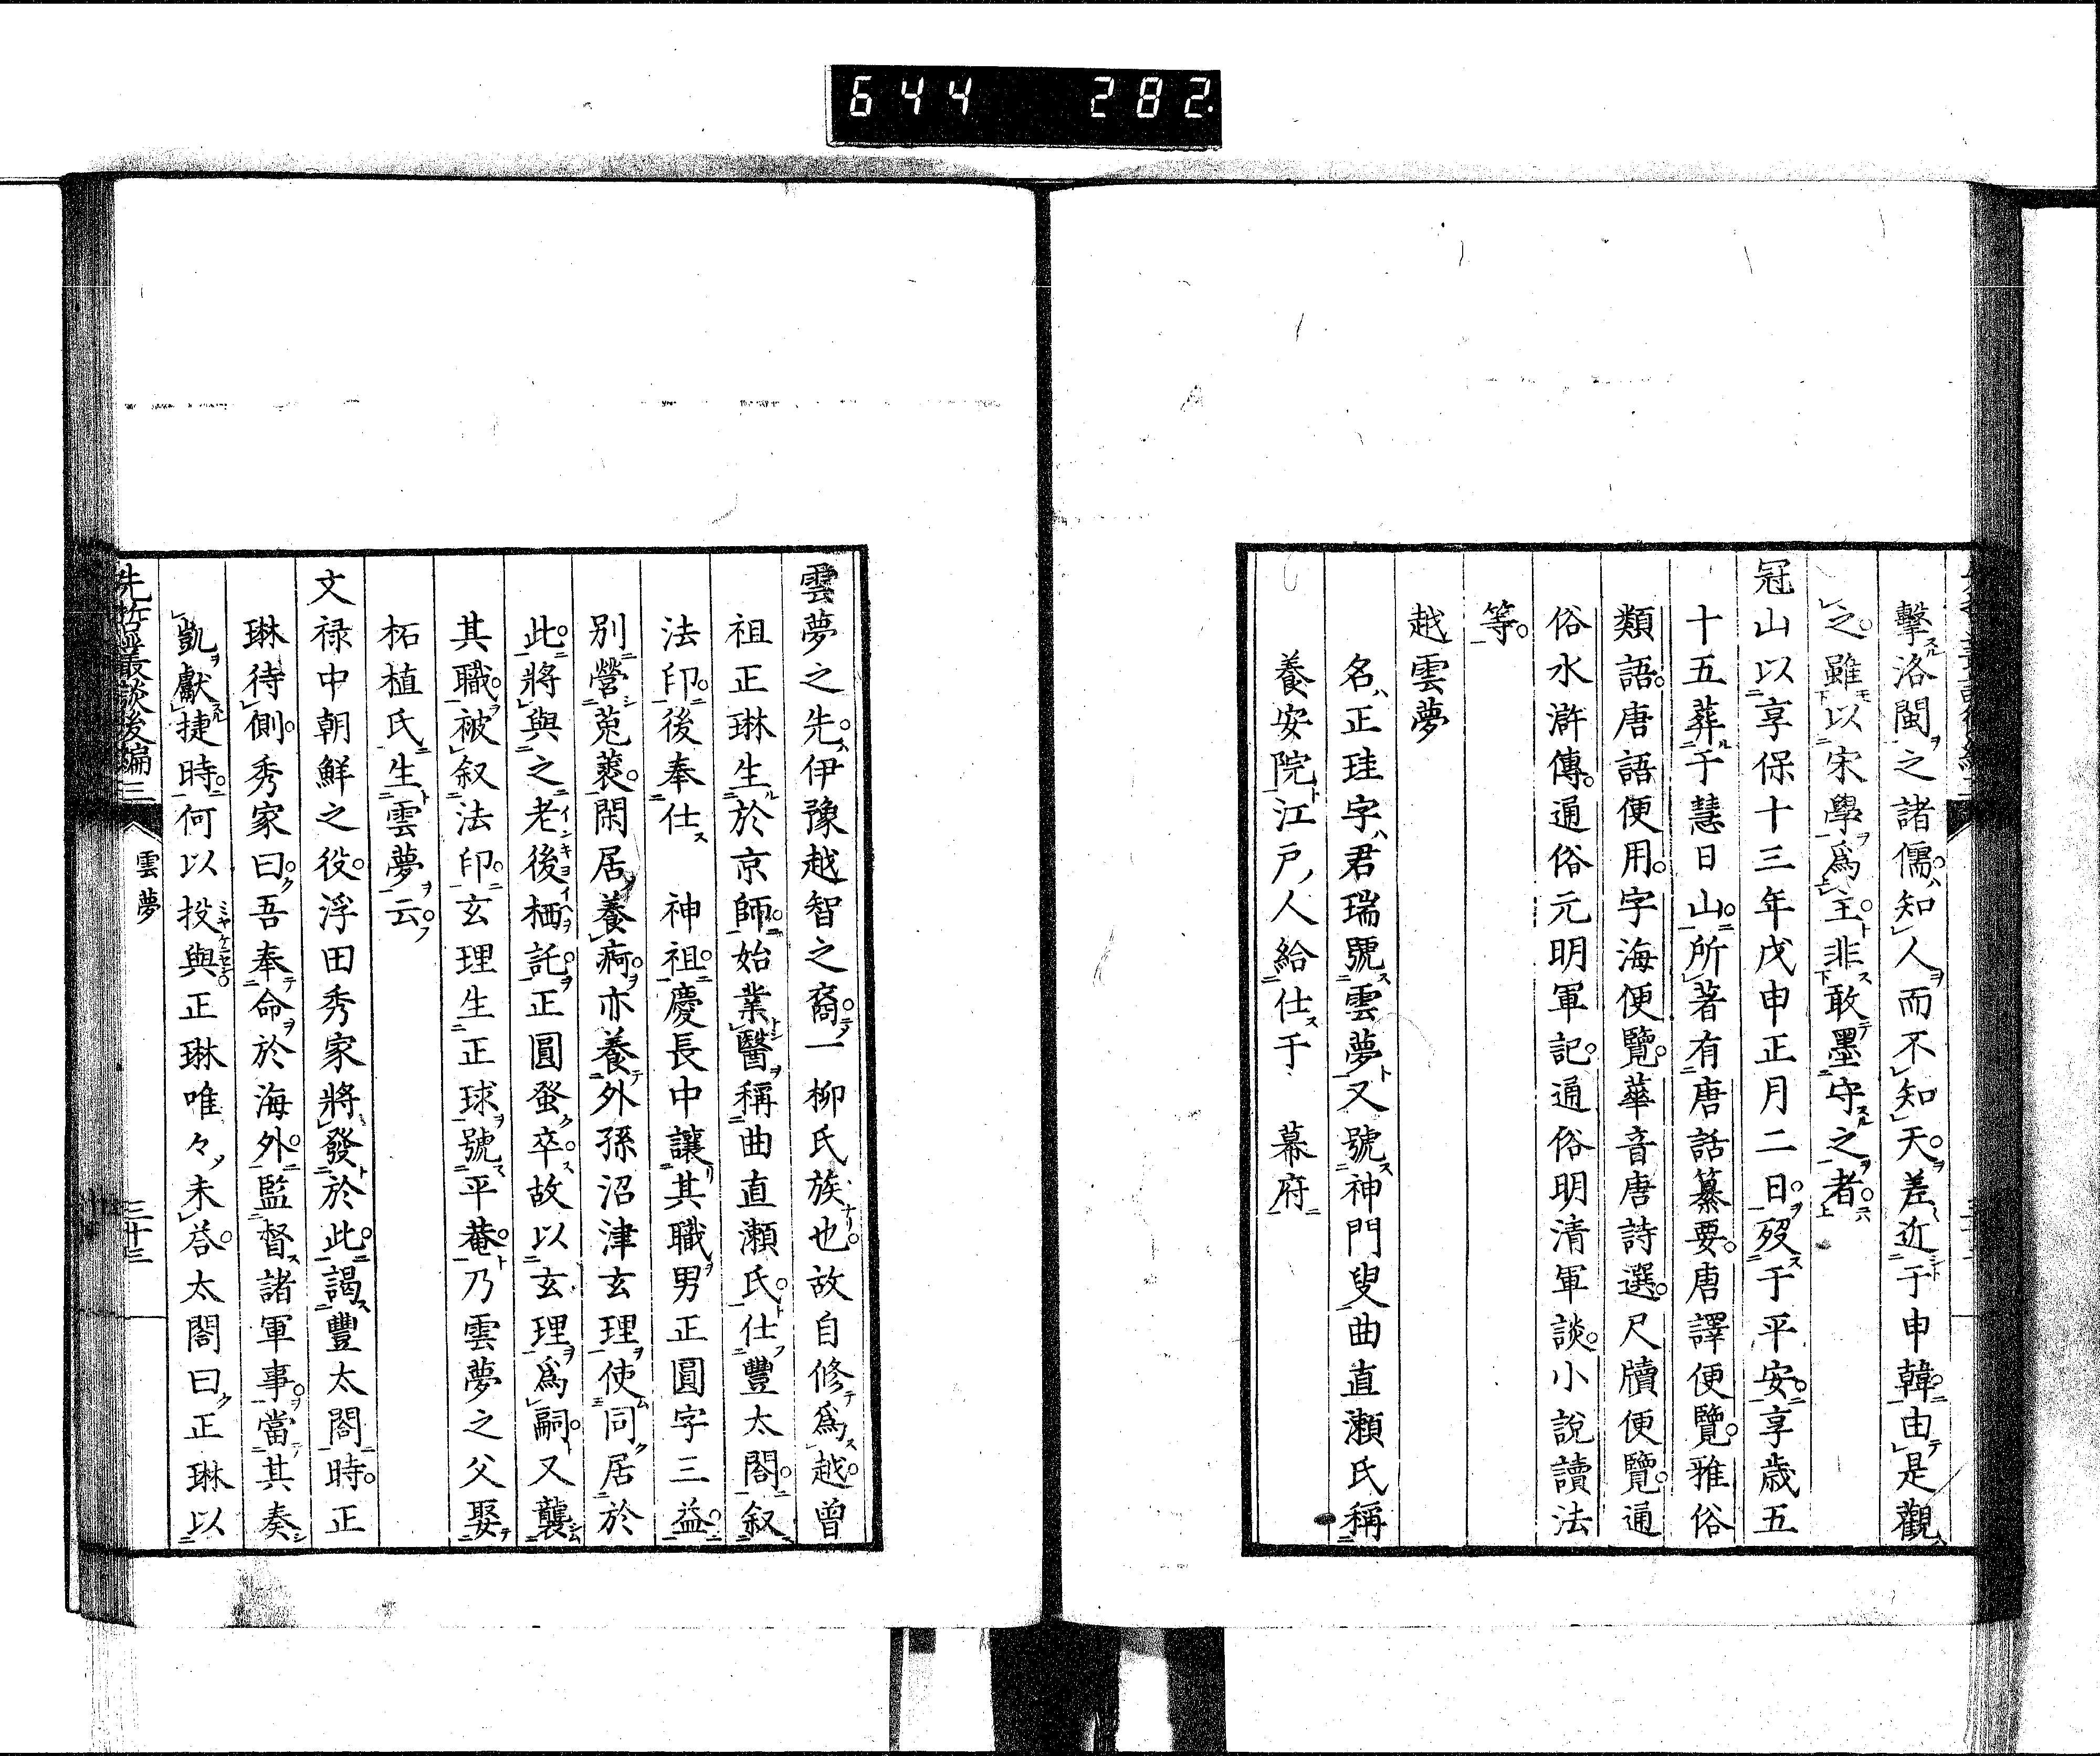 644 282
擊洛閩之諸儒知人而不知天差近于申韓由是觀
之雖以宋學爲主非敢墨守之者
冠山以享保十三年戊申正月二日歿于平安享歳五
十五葬于慧日山所著有唐話纂要唐譯便覽雅俗
類語唐語便用字海便覽華音唐詩選尺牘便覽通
俗水滸傳通俗元明軍記通俗明清軍談小說讀法
等
越雲夢
名正珪字君瑞號雲夢又號神門叟曲直瀬氏稱
養安院江戸人給仕于 幕府
雲夢之先伊豫越智之裔一柳氏族也故自修爲越曾
祖正琳生於京師始業醫稱曲直瀬氏仕豐太閤叙
法印後奉仕 神祖慶長中讓其職男正圓字三益
別營菟裘閑居養痾亦養外孫沼津玄理使同居於
此將與之老後栖託正圓蚤卒故以玄理爲嗣又襲
其職被叙法印玄理生正球號平菴乃雲夢之父娶
柘植氏生雲夢云
文禄中朝鮮之役浮田秀家將發於此謁豐太閤時正
琳待側秀家曰吾奉命於海外監督諸軍事當其奏
凱獻捷時何以投與正琳唯々未荅太閤曰正琳以
先哲叢談後編三
雲夢
三十三